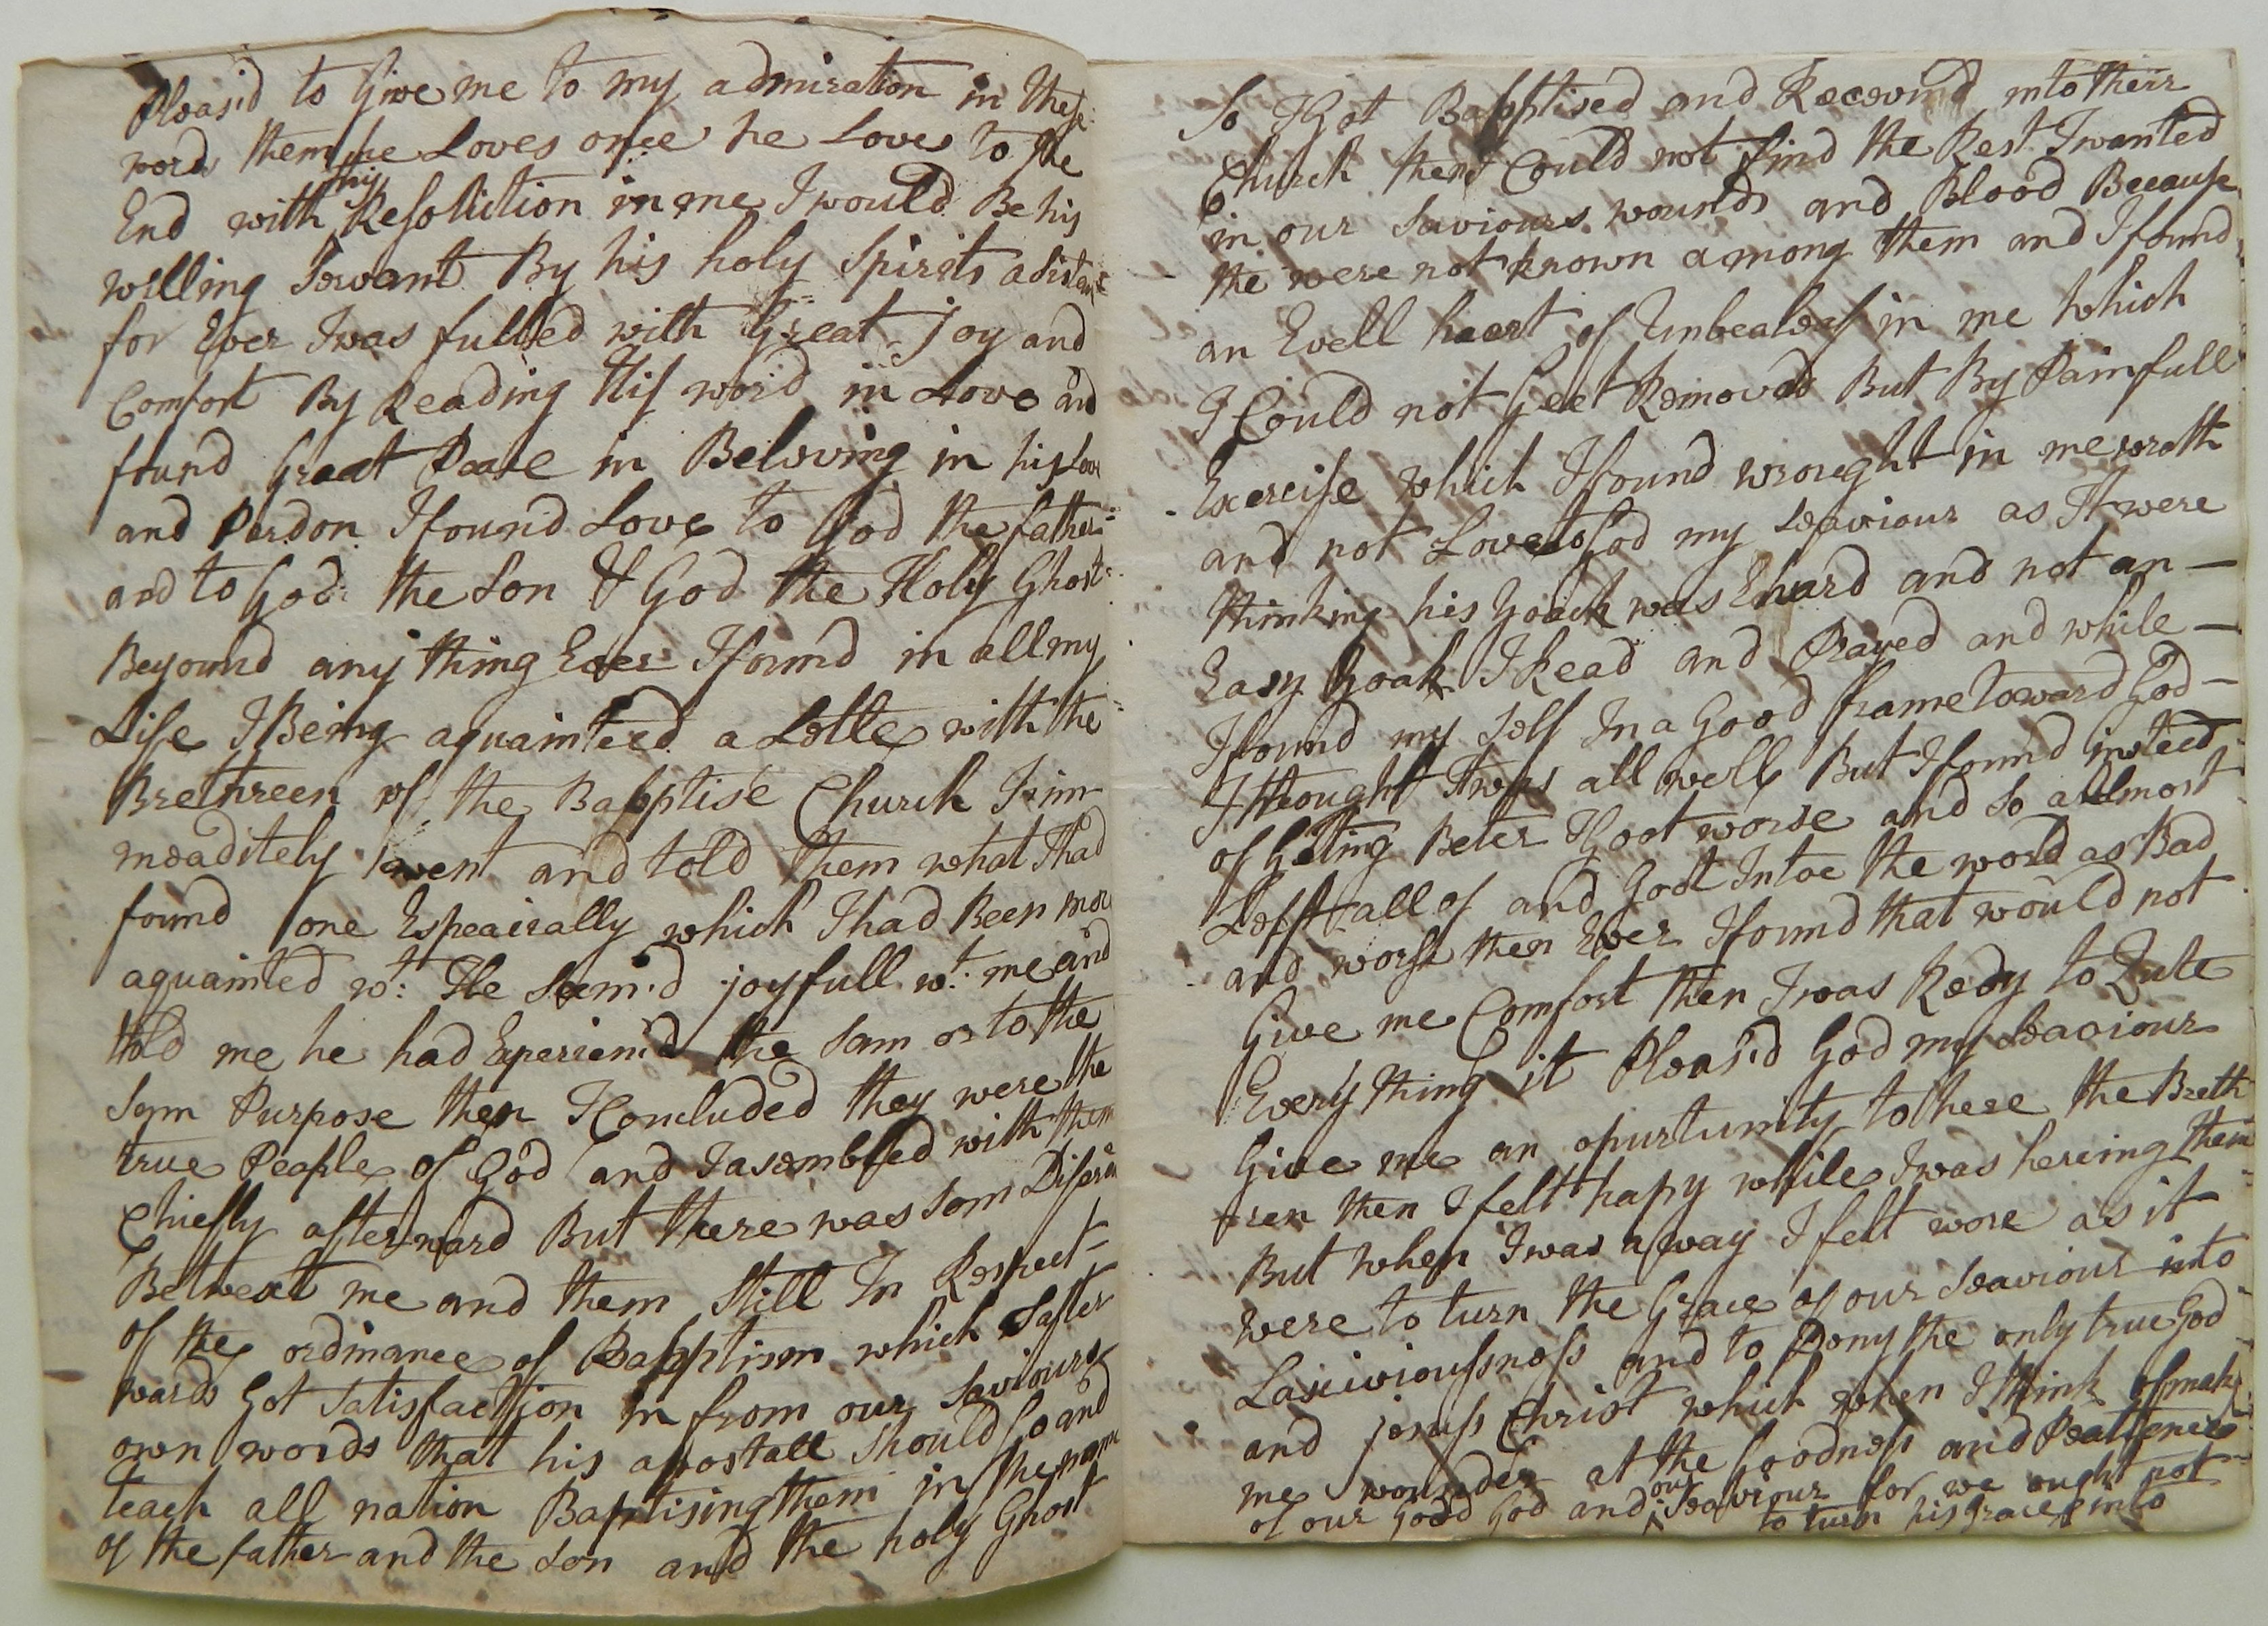 Pleasid to Give me to my admiration in these
words them he Loves once he Loves to the
End with this Resolution in me I would Be his
willing Servant By his holy Spirits asistanc
for Ever I was fulled with Great joy and
Comfort By Reading His word in Love and
found Great Peace in Beliving in his Love
and Pardon I found Love to God the father
and to God the Son & God the Holy Ghost
Beyound any thing Ever I found in all my
Life I Being aquainteed a Lettle with the
Brethreen of the Babptise Church I im-
meaditely went and told them what I had
found one Espeacially which I had Been more
aquainted wt: He Seem'd joyfull wt: me and
told me he had Experienid the Sam or to the
Sam Purpose then I Concluded they were the
true People of God and I asembled with them
Chiefly afterward But there was som Difern
Betwext me and them Still In Respect
of the ordinance of Babptism which I after
wards Got Satisfacttion in from our Saviours
own words that his apostall Should Go and
teach all nation Baptising them in the name
of the father and the Son and the holy Ghost
So I Got Babptised and Receevind into their
Church then I Could not find the Rest I wanted
in our Saviours wounds and Blood Because
the were not known among them and I found
an Evell heart of Unbealeaf in me Which
I Could not Geet Removed But By Painfull
Exercise which I found wrought in me wrath
and not Love to God my Seaviour as It were
thinking his Yoack was hard and not an -
Easy Yoak I Read and Prayed and while -
I found my Self In a Good frame toward God -
I thought I was all well But I found insteed
of Geting Beter I Goot worse and So allmost
Left all of and Goot Intoe the world as Bad
and worse then Ever I found that would not
Give me Comfort then I was Redy to Qute
Every thing it Pleasid God my Seaviour
Give me an opurtunity to here the Breth
ren then I felt hapy while I was hereing them
But when I was away I felt wore as it
were to turn the Grace of our Seaviour into
Lasiviousness and to Deny the only true God
and jesus Christ which when I think of mak
me wounder at the Goodness and Peatience
of our Good God and our Seaviour for we ought not
to turn his Grace into